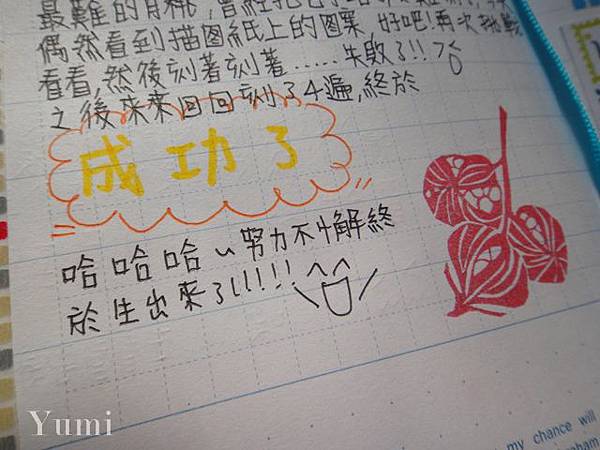 最難的月桃,曾經把它
偶然看到描圖紙上的圖案 好吧!再次挑戰
看看,然後刻著刻著......失敗了!!
之後來來回回刻了4遍,終於
成功了
哈哈哈~努力不懈終
於生出來了!!!!!
Yumi
my chance will